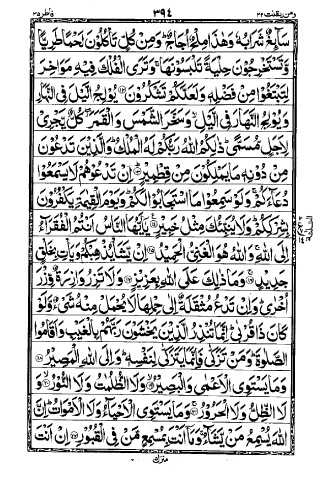 فاطر ٣٥ ٣٩٤ ومن يقنت ٢٢
سَآئِغٌ شَرَابُهٗ وَهٰذَا مِلْحٌ اُجَاجٌ وَمِنْ كُلٍّ تَاْكُلُوْنَ لَحْمًا طَرِيًّا
وَّتَسْتَخْرِجُوْنَ حِلْيَةً تَلْبَسُوْنَهَا وَتَرَى الْفُلْكَ فِيْهِ مَوَاخِرَ
لِتَبْتَغُوْا مِنْ فَضْلِهٖ وَلَعَلَّكُمْ تَشْكُرُوْنَ ۝١٢ يُوْلِجُ الَّيْلَ فِى النَّهَارِ
وَيُوْلِجُ النَّهَارَ فِى الَّيْلِ وَسَخَّرَ الشَّمْسَ وَالْقَمَرَ كُلٌّ يَّجْرِىْ
لِاَجَلٍ مُّسَمًّى ذٰلِكُمُ اللّٰهُ رَبُّكُمْ لَهُ الْمُلْكُ وَالَّذِيْنَ تَدْعُوْنَ
مِنْ دُوْنِهٖ مَا يَمْلِكُوْنَ مِنْ قِطْمِيْرٍ ۝١٣ اِنْ تَدْعُوْهُمْ لَا يَسْمَعُوْا
دُعَآءَكُمْ وَلَوْ سَمِعُوْا مَا اسْتَجَابُوْا لَكُمْ وَيَوْمَ الْقِيٰمَةِ يَكْفُرُوْنَ
بِشِرْكِكُمْ وَلَا يُنَبِّئُكَ مِثْلُ خَبِيْرٍ ۝١٤ يٰٓاَيُّهَا النَّاسُ اَنْتُمُ الْفُقَرَآءُ
اِلَى اللّٰهِ وَاللّٰهُ هُوَ الْغَنِىُّ الْحَمِيْدُ ۝١٥ اِنْ يَّشَاْ يُذْهِبْكُمْ وَيَاْتِ بِخَلْقٍ
جَدِيْدٍ ۝١٦ وَمَا ذٰلِكَ عَلَى اللّٰهِ بِعَزِيْزٍ ۝١٧ وَلَا تَزِرُ وَازِرَةٌ وِّزْرَ
اُخْرٰى وَاِنْ تَدْعُ مُثْقَلَةٌ اِلٰى حِمْلِهَا لَا يُحْمَلْ مِنْهُ شَىْءٌ وَّلَوْ
كَانَ ذَا قُرْبٰى اِنَّمَا تُنْذِرُ الَّذِيْنَ يَخْشَوْنَ رَبَّهُمْ بِالْغَيْبِ وَاَقَامُوا
الصَّلٰوةَ وَمَنْ تَزَكّٰى فَاِنَّمَا يَتَزَكّٰى لِنَفْسِهٖ وَاِلَى اللّٰهِ الْمَصِيْرُ ۝١٨
وَمَا يَسْتَوِى الْاَعْمٰى وَالْبَصِيْرُ ۝١٩ وَلَا الظُّلُمٰتُ وَلَا النُّوْرُ ۝٢٠ وَ
لَا الظِّلُّ وَلَا الْحَرُوْرُ ۝٢١ وَمَا يَسْتَوِى الْاَحْيَآءُ وَلَا الْاَمْوَاتُ اِنَّ
اللّٰهَ يُسْمِعُ مَنْ يَّشَآءُ وَمَآ اَنْتَ بِمُسْمِعٍ مَّنْ فِى الْقُبُوْرِ ۝٢٢ اِنْ اَنْتَ